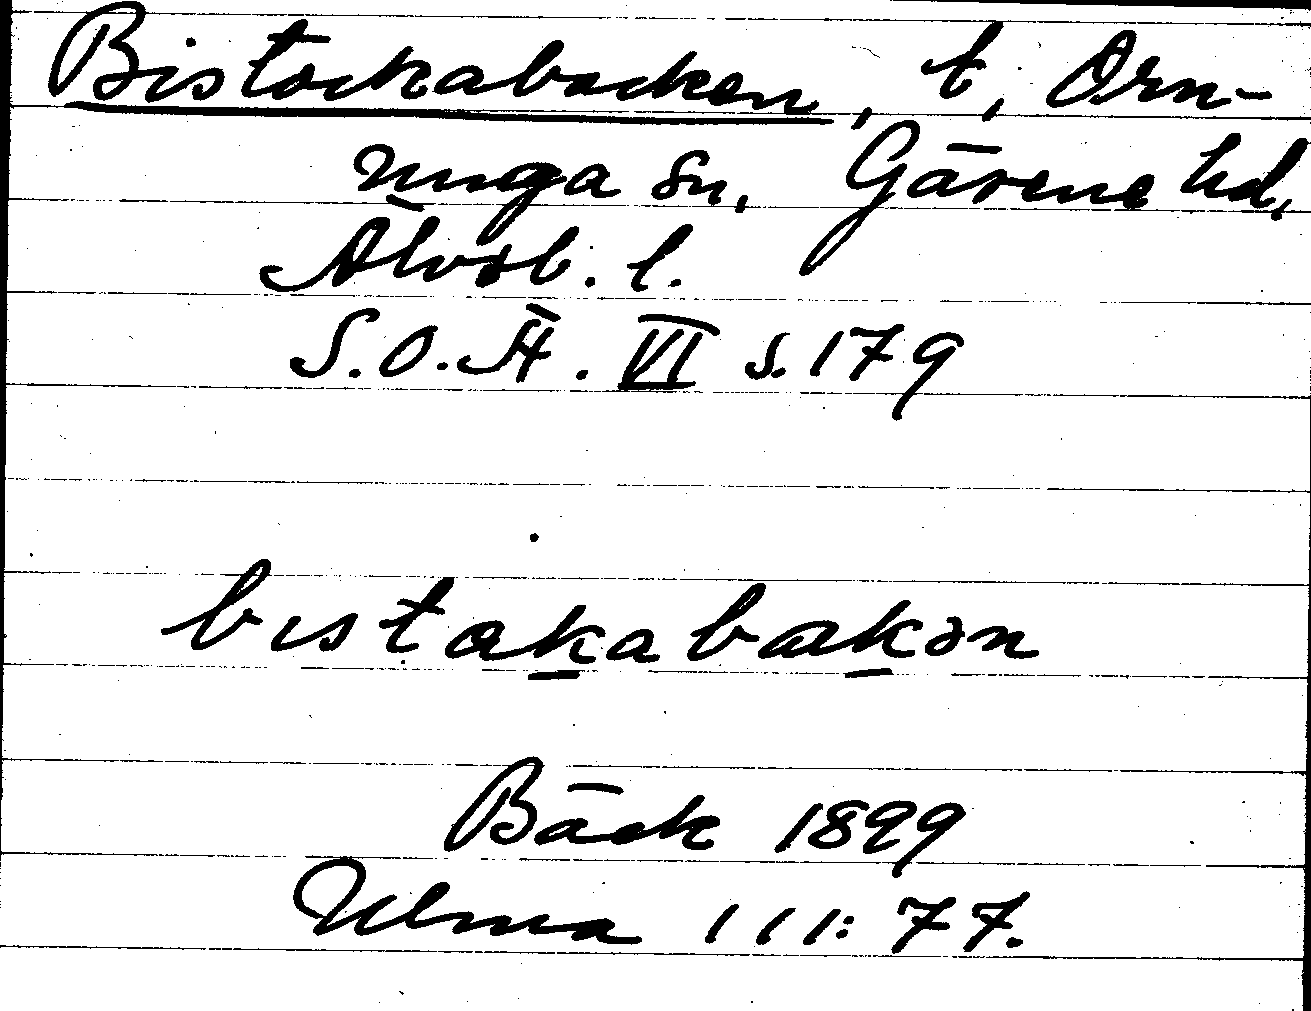 Bistockabacken, t, Orn-
unga sn, Gäsene hd,
Älvsb. l.
S.O.Ä. VI s. 179
bıstakabakən
Bäck 1899
Ulma 111:77.